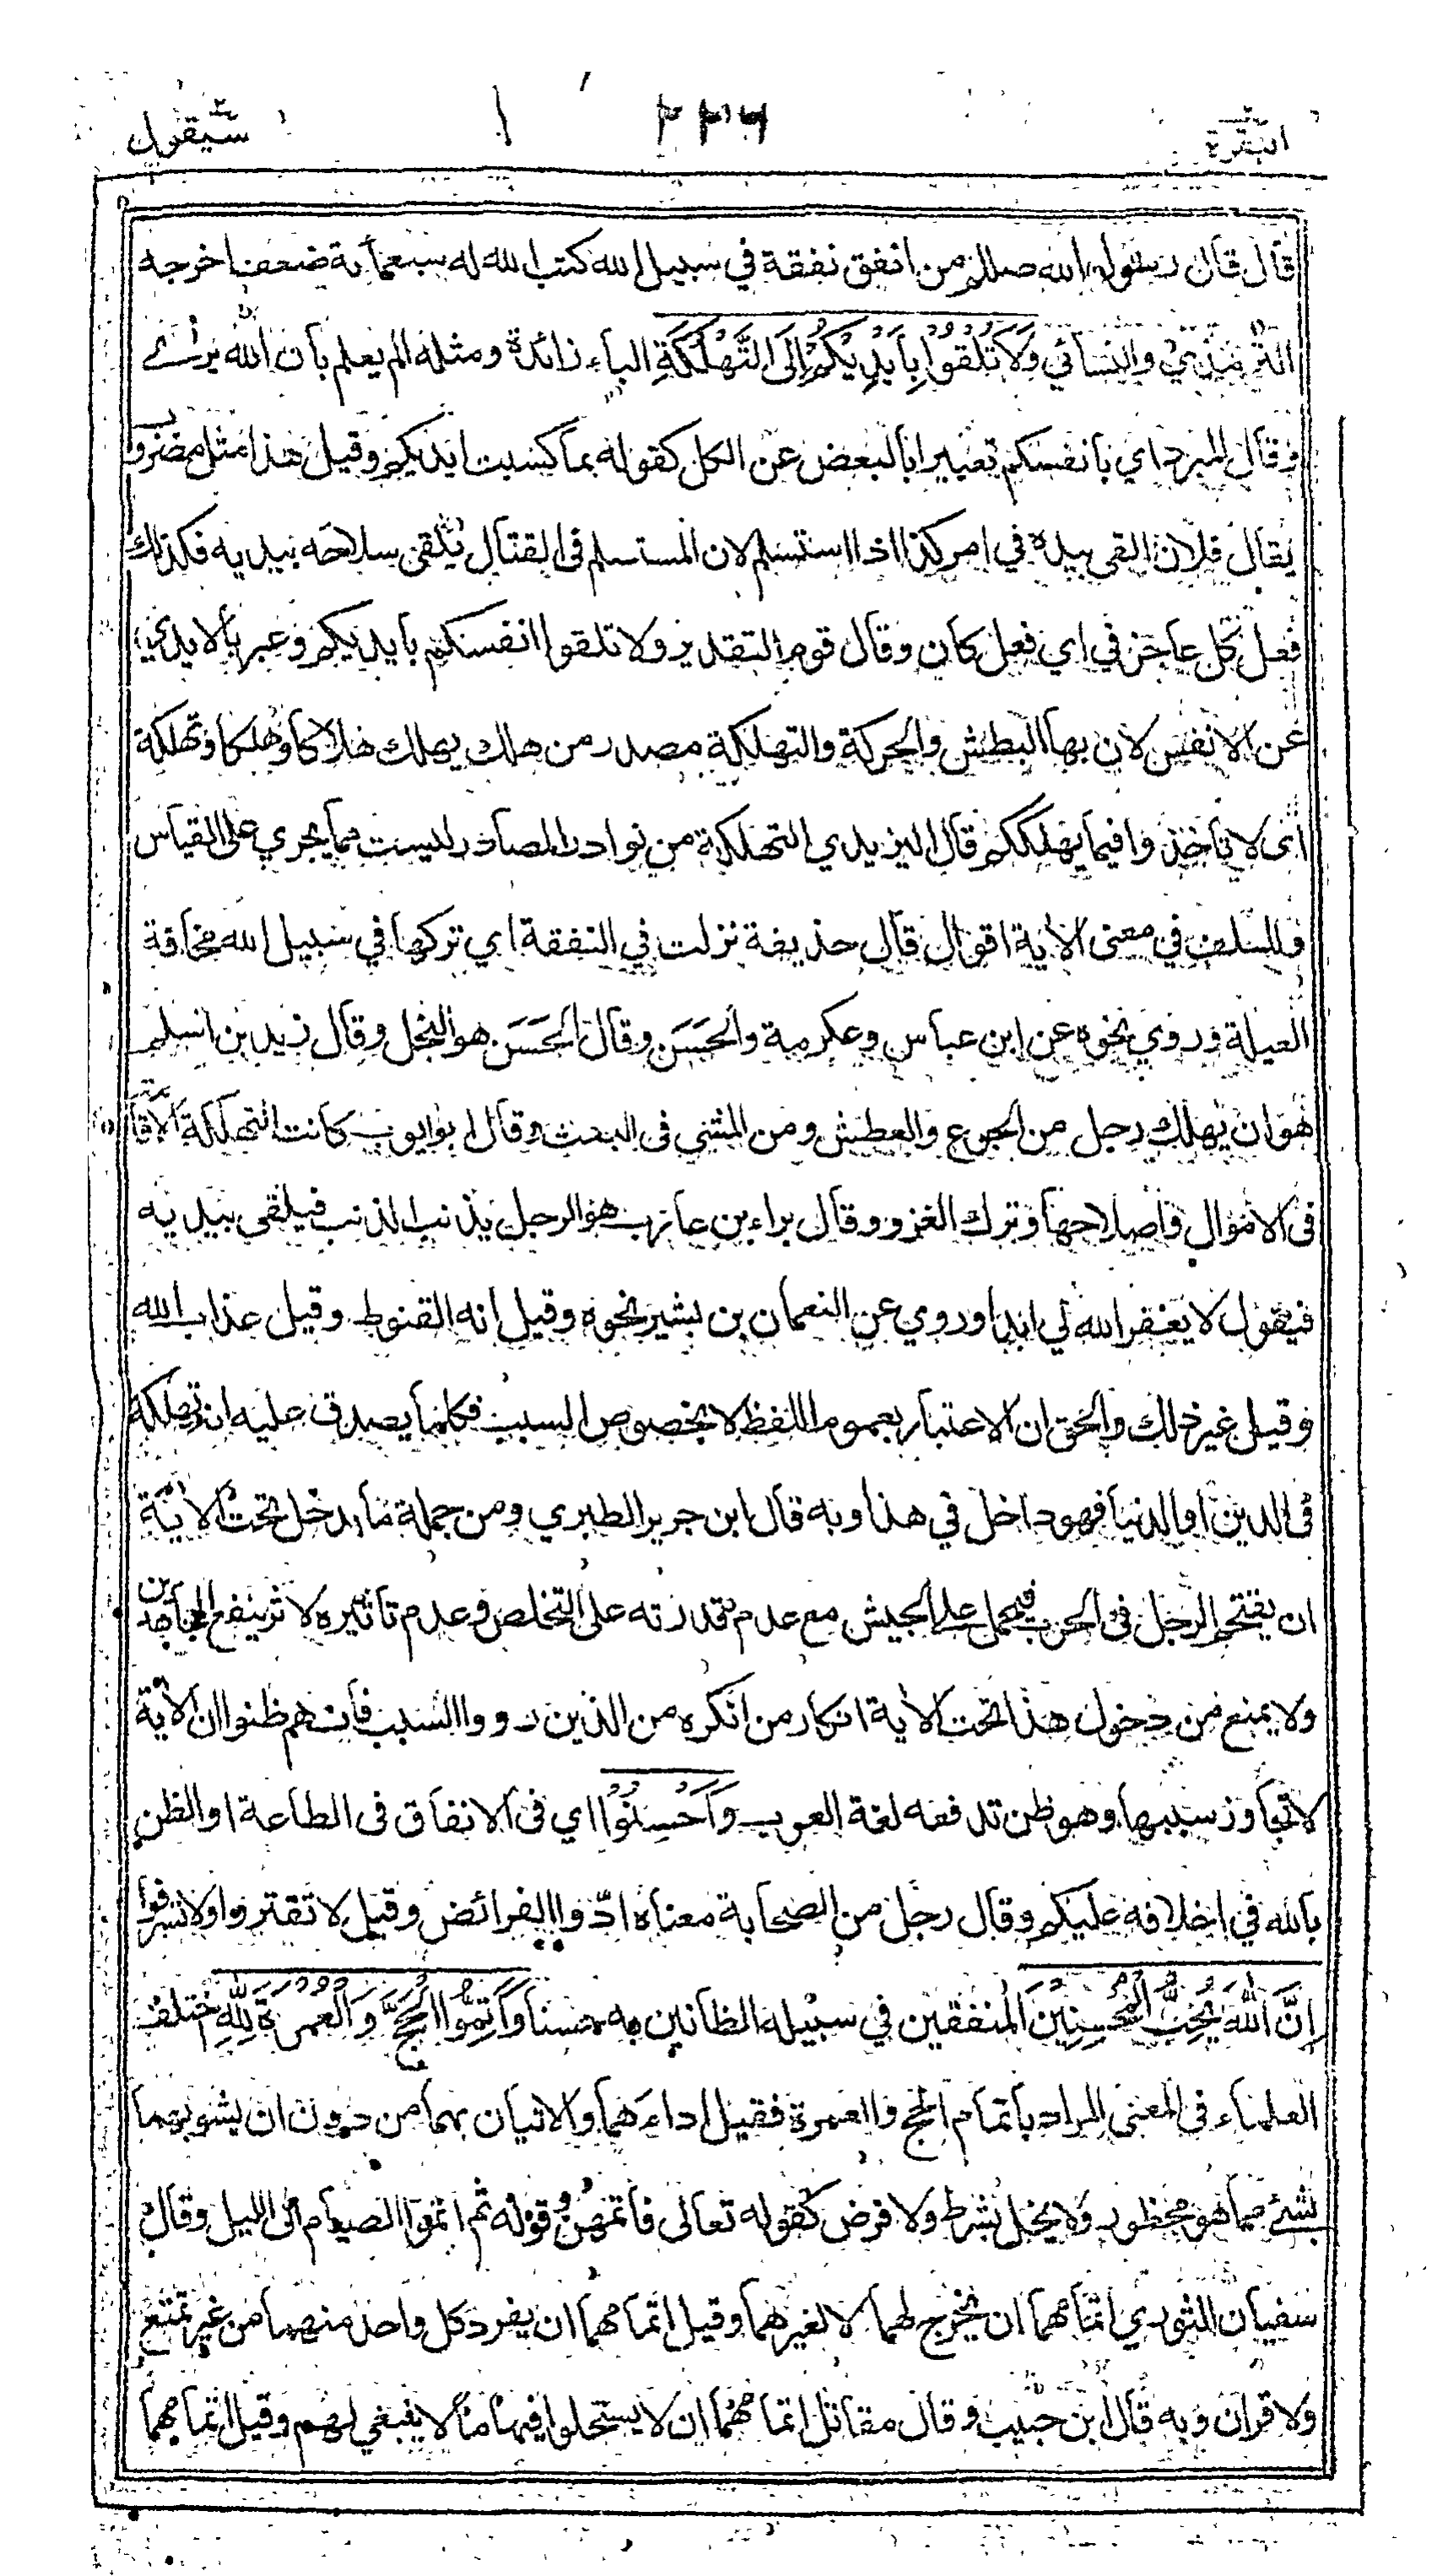 البقرة ٢٣٦ سيقول
قال قال رسول الله صللم من انفق نفقة في سبيل الله كتب الله له سبعمأية ضعف اخرجه
الترمذي والنسائي وَلَا تُلْقُوْا بِأَيْدِيْكُمْ إِلَى التَّهْلُكَةِ الباء زائدة ومثله الم يعلم بأن الله يرى
وقال المبرد اي بانفسكم تعبيرا بالبعض عن الكل كقوله بما كسبت ايديكم وقيل هذا مثل مضروب
يقال فلان القى بيده في امر كذا اذا استسلم لان المستسلم في القتال يلقي سلاحه بيديه فكذلك
فعل كل عاجز في اي فعل كان وقال قوم التقدير ولا تلقوا انفسكم بايديكم وعبر بالايدي
عن الانفس لان بها البطش والحركة والتهلكة مصدر من هلك يهلك هلاكا وهلكا وتهلكة
اى لا تأخذوا فيما يهلككم قال اليزيدي التهلكة من نوادر المصادر ليست مما يجري على القياس
وللسلف في معنى الأية اقوال قال حذيفة نزلت في النفقة اي تركها في سبيل الله مخافة
العيلة وروي نحوه عن ابن عباس وعكرمة والحَسَن وقال الحَسَن هو البخل وقال زيد بن اسلم
هو ان يهلك رجل من الجوع والعطش ومن المشي في البعث وقال ابو ايوب كانت التهلكة الاقامة
فى الاموال واصلاحها وترك الغزو وقال براء بن عازب هو الرجل يذنب الذنب فيلقى بيديه
فيقول لا يغفر الله لي ابدا وروي عن النعمان بن بشير نحوه وقيل انه القنوط وقيل عذاب الله
وقيل غير ذلك والحق ان الاعتبار بعموم اللفظ لا بخصوص السبب فكلما يصدق عليه انه تهلكة
فى الدين او الدنيا فهو داخل في هذا وبه قال ابن جرير الطبري ومن جملة ما يدخل تحت الأية
ان يقتحم الرجل فى الحرب فيحمل على الجيش مع عدم قدرته على التخلص وعدم تاثيره لاثر ينفع المجاهدين
ولا يمنع من دخول هذا تحت الأية انكار من انكره من الذين رووا السبب فانهم ظنوا ان الأية
لا تجاوز سببها وهو ظن تدفعه لغة العرب وَأَحْسِنُوْا اي فى الانفاق فى الطاعة او الظن
بالله في اخلافه عليكم وقال رجل من الصحابة معناه ادّوا الفرائض وقيل لا تقتروا ولا تسرفوا
إِنَّ اللهَ يُحِبُّ الْمُحْسِنِيْنَ المنفقين في سبيله الظانين به حسنا وَأَتِمُّوا الْحَجَّ وَالْعُمْرَةَ لِلّٰهِ اختلف
العلماء فى المعنى المراد باتمام الحج والعمرة فقيل اداءهما والاتيان بهما من دون ان يشوبهما
بشئ مما هو محظور ولا يخل بشرط ولا فرض كقوله تعالى فاتمهن وقوله ثم اتموا الصيام الى الليل وقال
سفيان الثوري اتمامهما ان يخرج لهما لا لغيرهما وقيل اتمامهما ان يفرد كل واحد منهما من غير تمتع
ولا قران وبه قال ابن حبيب وقال مقاتل اتمامهما ان لا يستحلوا فيهما ما لا ينبغي لهم وقيل اتمامهما